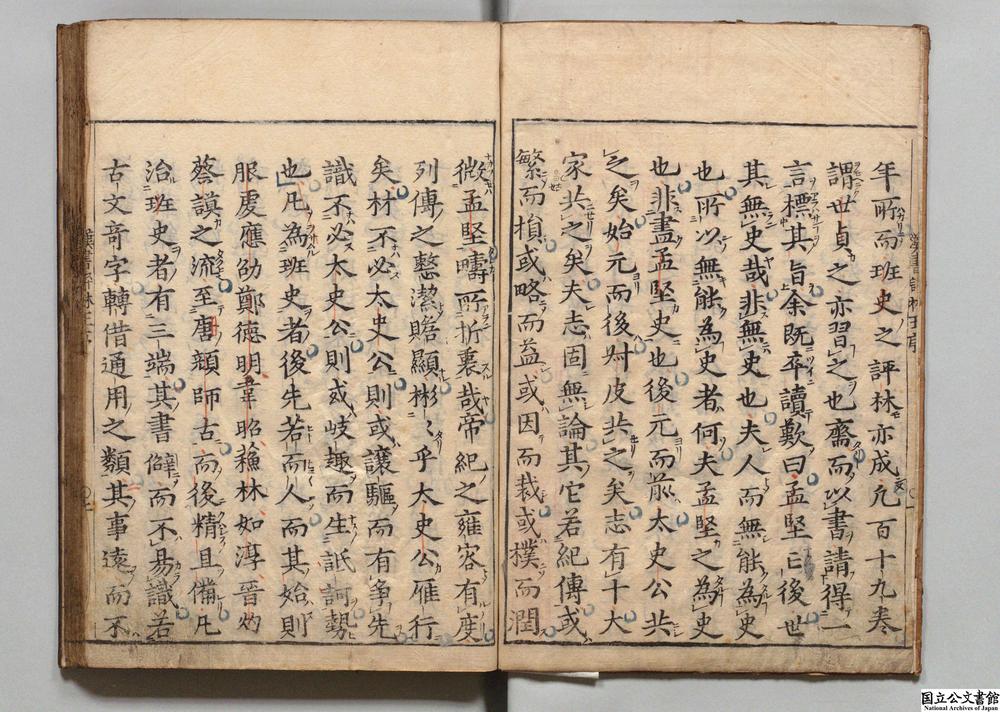 年所而班史之評林亦成凡百十九卷
謂世貞之亦習之也齋而以書請得一
言標其旨余既卒讀歎曰孟堅亡後世
其無史哉非無史也夫人而無能為史
也所以無能為史者何夫孟堅之為史
也非盡孟堅史也後元而前太史公共
之矣始元而後叔皮共之矣志有十大
家共之矣夫志固無論其它若紀傳或
繁而損或略而益或因而裁或樸而潤
微孟堅疇所折衷哉帝紀之雍容有度
列傳之整潔贍顯彬〻乎太史公雁行
矣材不必太史公則或讓驅而有爭先
識不必太史公則或岐趣而生訿訶勢
也凡為班史者後先若而人而其始則
服虔應劭鄭德明韋昭蘇林如淳晉灼
蔡謨之流至唐顏師古而後精且備凡
治班史者有三端其書僻而不易識若
古文奇字轉借通用之類其事遠而不
国立公文書館
National Archives of Japan